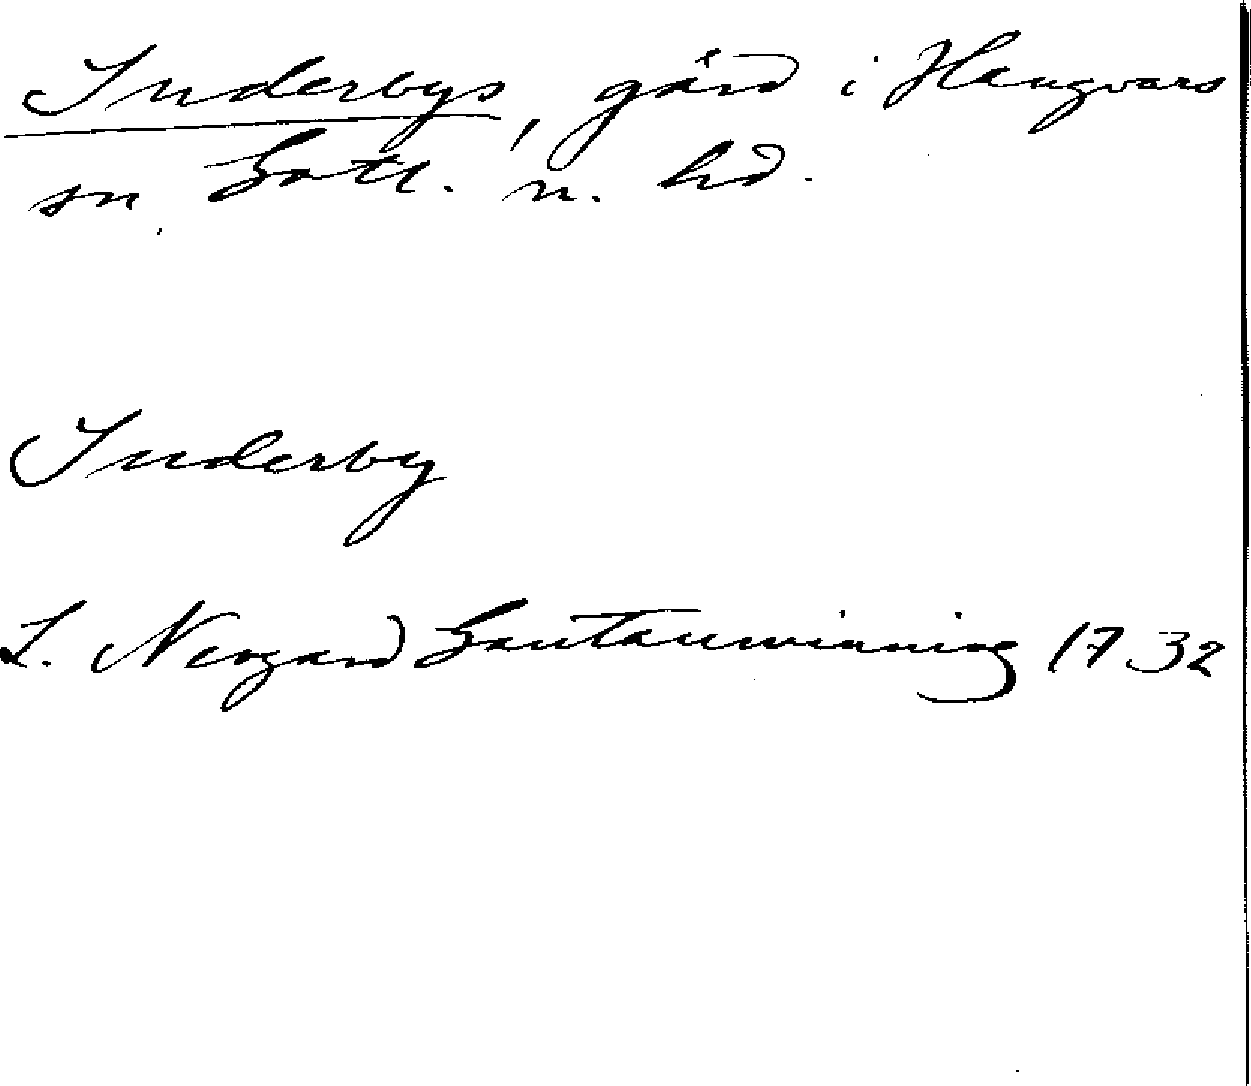 Inderbys, gård i Hangvars
sn, Gotl. n. hd.
Inderby
L. Neogard Gautauminning 1732